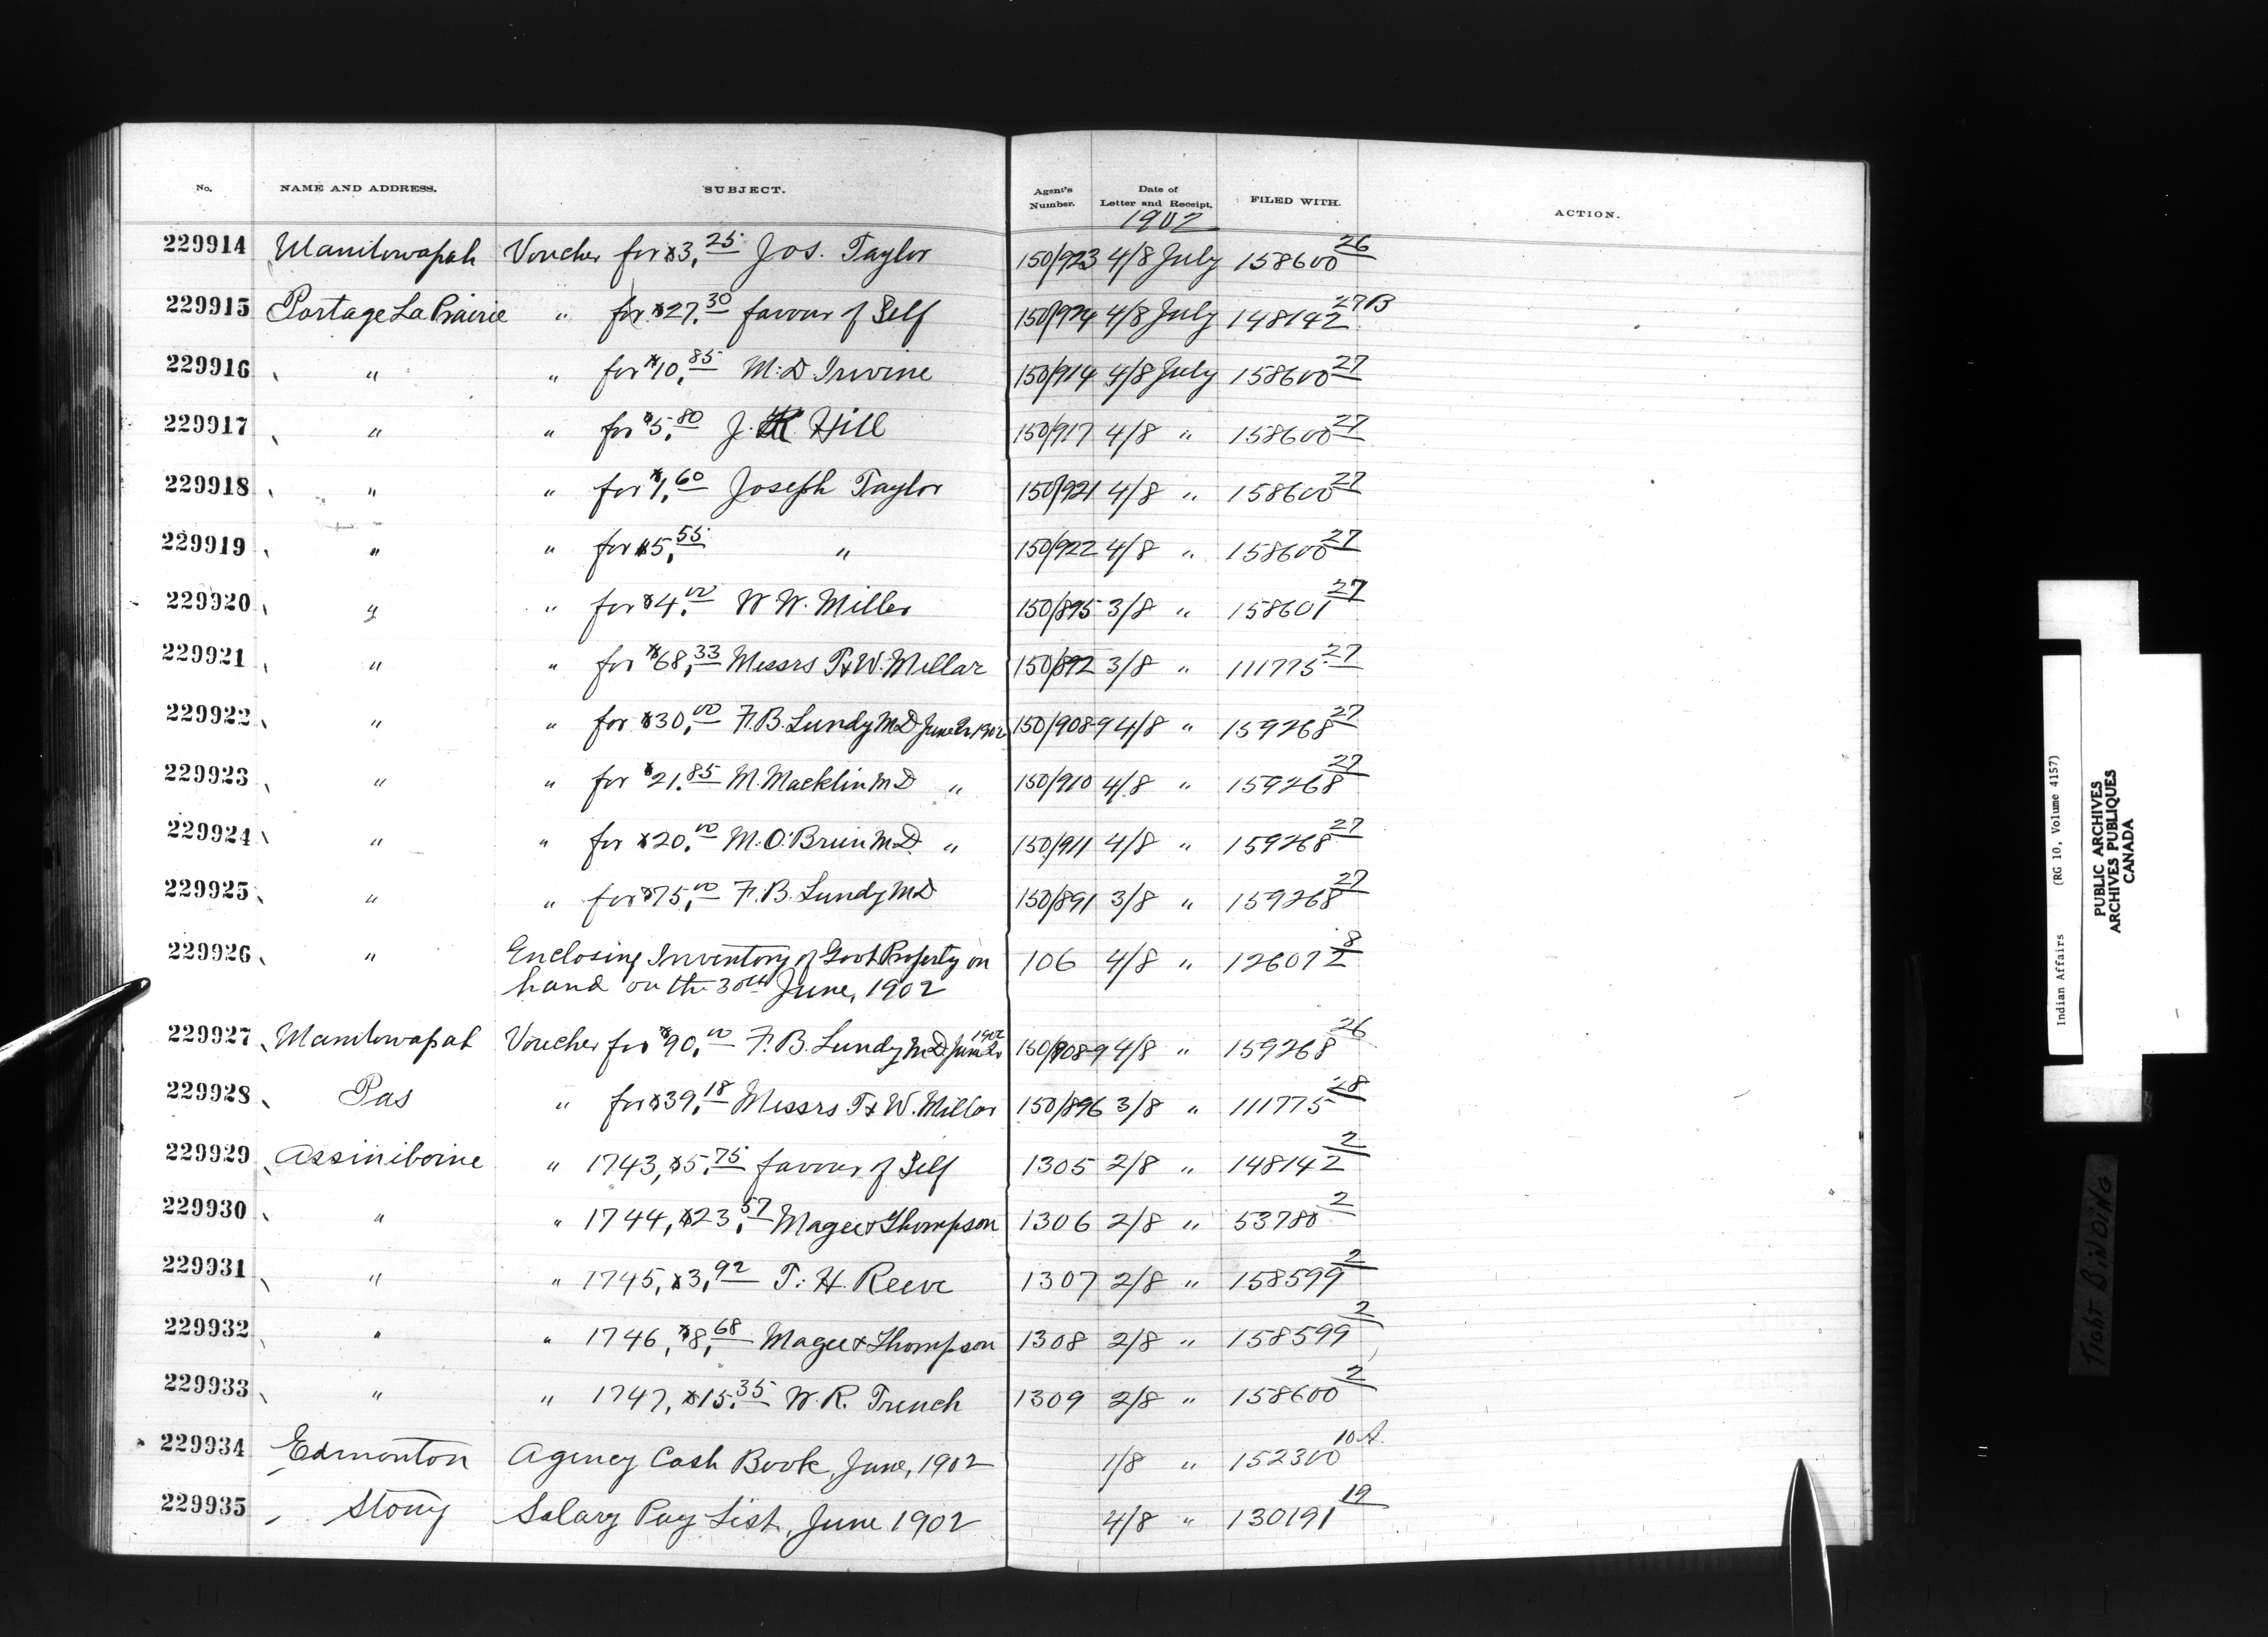 No. NAME AND ADDRESS. SUBJECT. Agent's Number. Date of Letter and Receipt. FILED WITH. ACTION.
1902
229914 Manitowapah Voucher for $3.25 Jos. Taylor 150/923 4/8 July 158600 26
229915 Portage La Prairie " for $27.30 favour of Self 150/924 4/8 July 148142 27B
229916 " " for $10.85 M. D. Irvine 150/914 4/8 July 158600 27
229917 " " for $5.80 J. Hill 150/917 4/8 " 158600 27
229918 " " for $1.60 Joseph Taylor 150/921 4/8 " 158600 27
229919 " " for $5.55 " 150/922 4/8 " 158600 27
229920 " " for $4.00 W. W. Miller 150/895 3/8 " 158601 27
229921 " " for $68.33 Messrs T & W. Millar 150/892 3/8 " 111775 27
229922 " " for $30.00 F. B. Lundy MD June Qr 1902 150/908-9 4/8 " 159268 27
229923 " " for $21.85 M. Macklin MD " 150/910 4/8 " 159268 27
229924 " " for $20.00 M. O'Brien MD " 150/911 4/8 " 159268 27
229925 " " for $75.00 F. B. Lundy MD 150/891 3/8 " 159268 27
229926 " Enclosing Inventory of Govt Property on 106 4/8 " 126072 8
hand on the 30th June, 1902
229927 Manitowapah Voucher for $90.00 F. B. Lundy MD June Qr 1902 150/908-9 4/8 " 159268 26
229928 Pas " for $39.18 Messrs T & W. Millar 150/896 3/8 " 111775 28
229929 Assiniboine " 1743, $5.75 favour of Self 1305 2/8 " 148142 2
229930 " " 1744, $23.57 Magee & Thompson 1306 2/8 " 53780 2
229931 " " 1745, $3.92 T. H. Reeve 1307 2/8 " 158599 2
229932 " " 1746, $8.68 Magee & Thompson 1308 2/8 " 158599 2
229933 " " 1747, $15.35 W. R. Trench 1309 2/8 " 158600 2
229934 Edmonton Agency Cash Book, June, 1902 1/8 " 152300 10A.
229935 Stony Salary Pay List, June 1902 4/8 " 130191 19
Indian Affairs (RG 10, Volume 4157)
PUBLIC ARCHIVES
ARCHIVES PUBLIQUES
CANADA
TIGHT BINDING